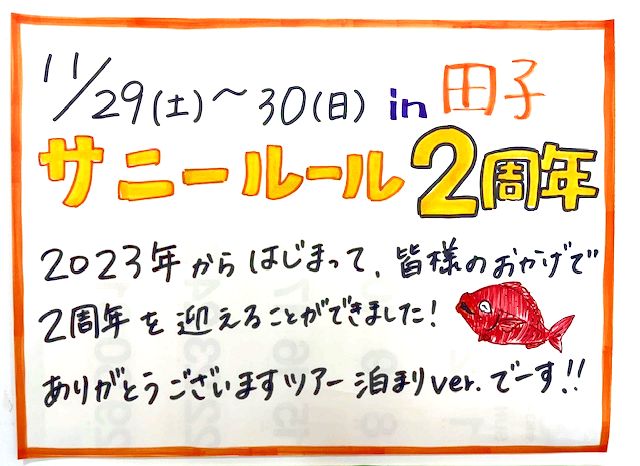 11/29(土)～30(日) in 田子
サニールール2周年
2023年からはじまって、皆様のおかげで
2周年を迎えることができました!
ありがとうございますツアー泊まりver.でーす!!